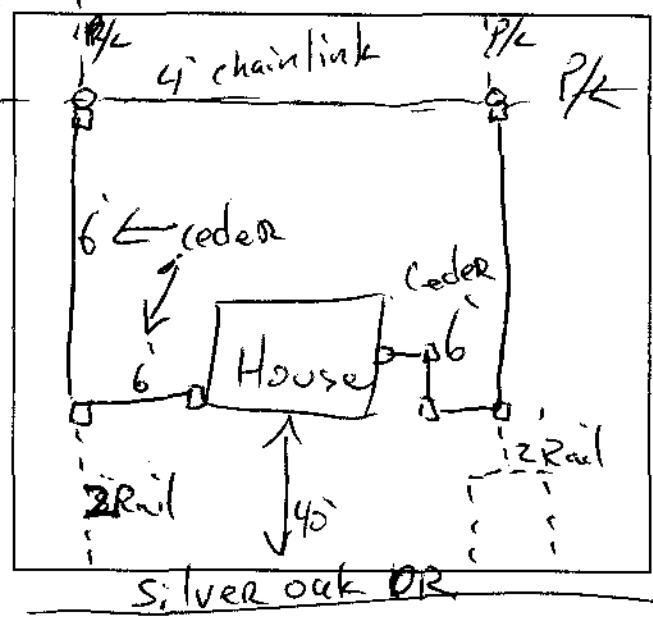 P/L
P/L
4' chainlink
P/L
6' ceder
Ceder
6'
6'
House
2 Rail
2 Rail
40'
Silver oak DR